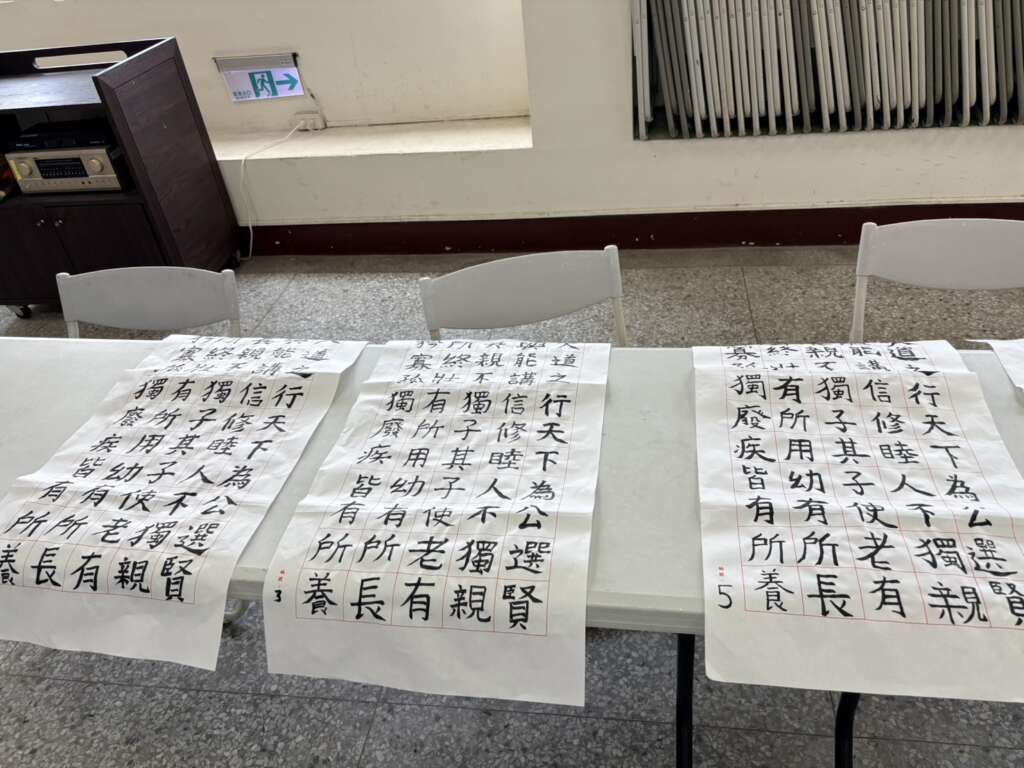 道之行天下為公選賢
能講信修睦人不獨親
親不獨子其子使老有
終壯有所用幼有所長
寡獨廢疾皆有所養
道之行天下為公選賢
與能講信修睦人不獨親
其親不獨子其子使老有
所終壯有所用幼有所長
寡孤獨廢疾皆有所養
3
道之行天下為公選賢
能講信修睦人不獨親
親不獨子其子使老有
終壯有所用幼有所長
寡獨廢疾皆有所養
5